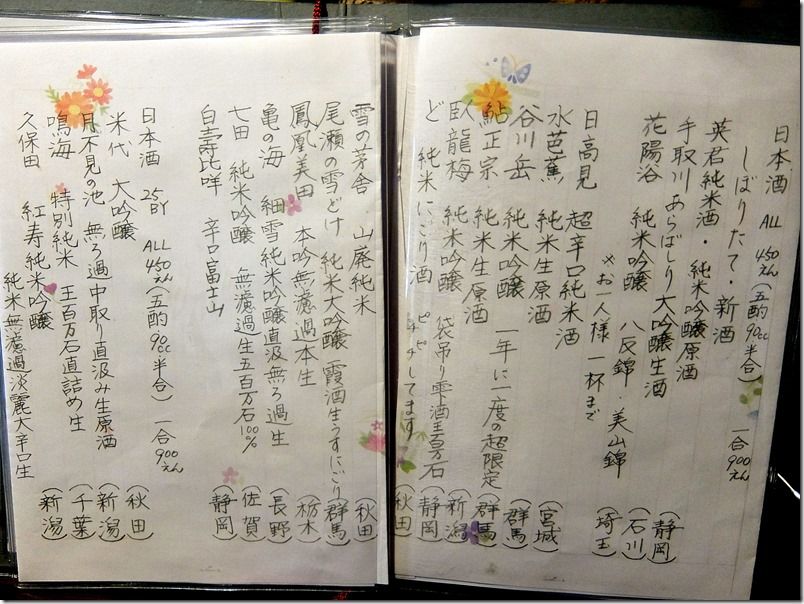 日本酒 ALL 450えん(五酌90cc半合) 一合900えん
しぼりたて・新酒
英君純米酒・純米吟醸原酒 (静岡)
手取川 あらばしり大吟醸生酒 (石川)
花陽谷 純米吟醸 八反錦・美山錦 (埼玉)
※お一人様一杯まで
日高見 超辛口純米酒 (宮城)
水芭蕉 純米生原酒 (群馬)
谷川岳 純米吟醸 一年に一度の超限定 (群馬)
鮎正宗 純米生原酒 (新潟)
臥龍梅 純米吟醸 袋吊り雫酒五百万石 (静岡)
ど 純米にごり酒 ピチピチしてます (秋田)
雪の茅舎 山廃純米 (秋田)
尾瀬の雪どけ 純米大吟醸 霞酒生うすにごり (群馬)
鳳凰美田 本吟無濾過本生 (栃木)
亀の海 細雪純米吟醸直汲無ろ過生 (長野)
七田 純米吟醸 無濾過生五百万石100% (佐賀)
白壽比咩 辛口富士山 (静岡)
日本酒 25BY ALL 450えん(五酌90cc半合) 一合900えん
米代 大吟醸 (秋田)
月不見の池 無ろ過中取り直汲み生原酒 (新潟)
鳴海 特別純米 五百万石直詰め生 (千葉)
久保田 紅寿純米吟醸 (新潟)
純米無濾過淡麗大辛口生